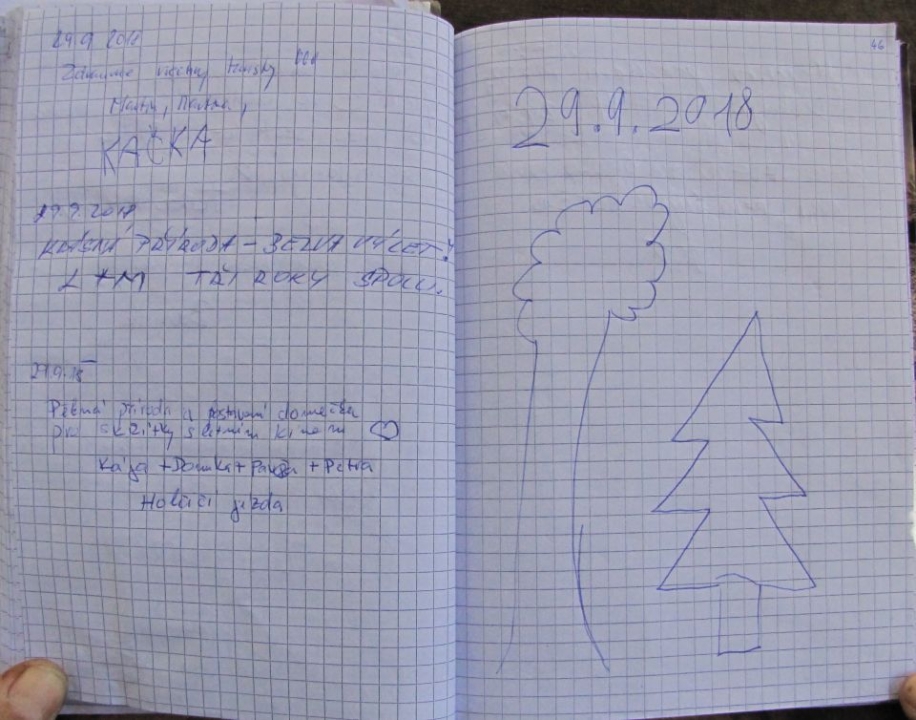 29.9 2018
Zdravíme všechny turisty
Martin, Martina,
KAČKA
29.9.2018
KRÁSNÁ PŘÍRODA - BEZVA VÝLET!
L + M TŘI ROKY SPOLU.
29.9.18
Pěkná příroda a postavení domečku
pro skřítky s letním kinem
Kája + Domka + + Petra
Holčičí jízda
46
29.9.2018